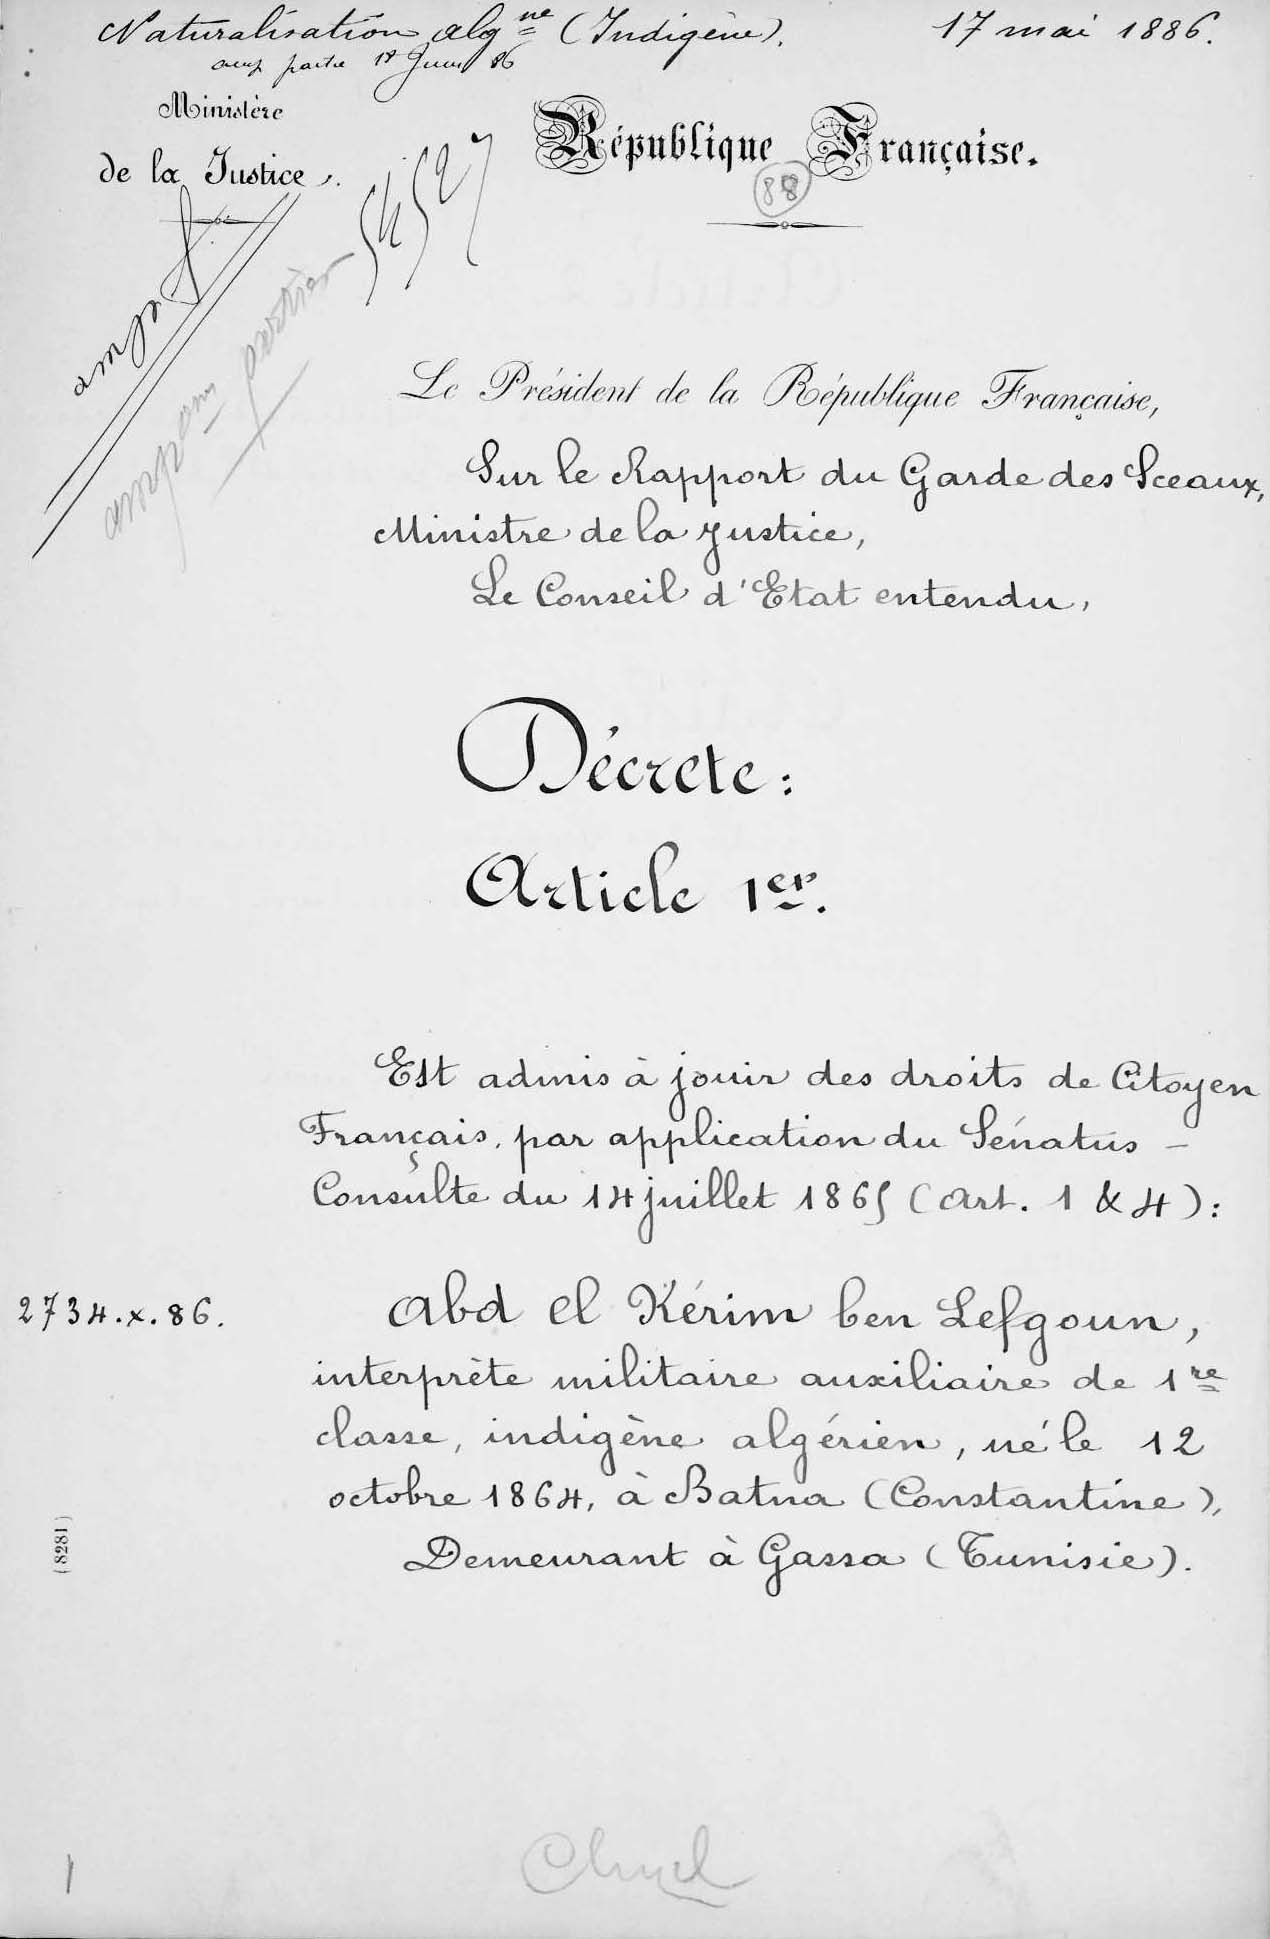 Naturalisation algne (Indigène). 17 mai 1886.
Ministère
de la Justice.
République Française.
88
54527
Le Président de la République Française,
Sur le Rapport du Garde des Sceaux,
Ministre de la Justice,
Le Conseil d'Etat entendu,
Décrete:
Article 1er.
Est admis à jouir des droits de Citoyen
Français, par application du Sénatus-
Consulte du 14 juillet 1865 (art. 1 & 4):
2734.x.86.
Abd el Kérim ben Lefgoun,
interprète militaire auxiliaire de 1re
classe, indigène algérien, né le 12
octobre 1864, à Batna (Constantine),
Demeurant à Gassa (Tunisie).
(8281)
1